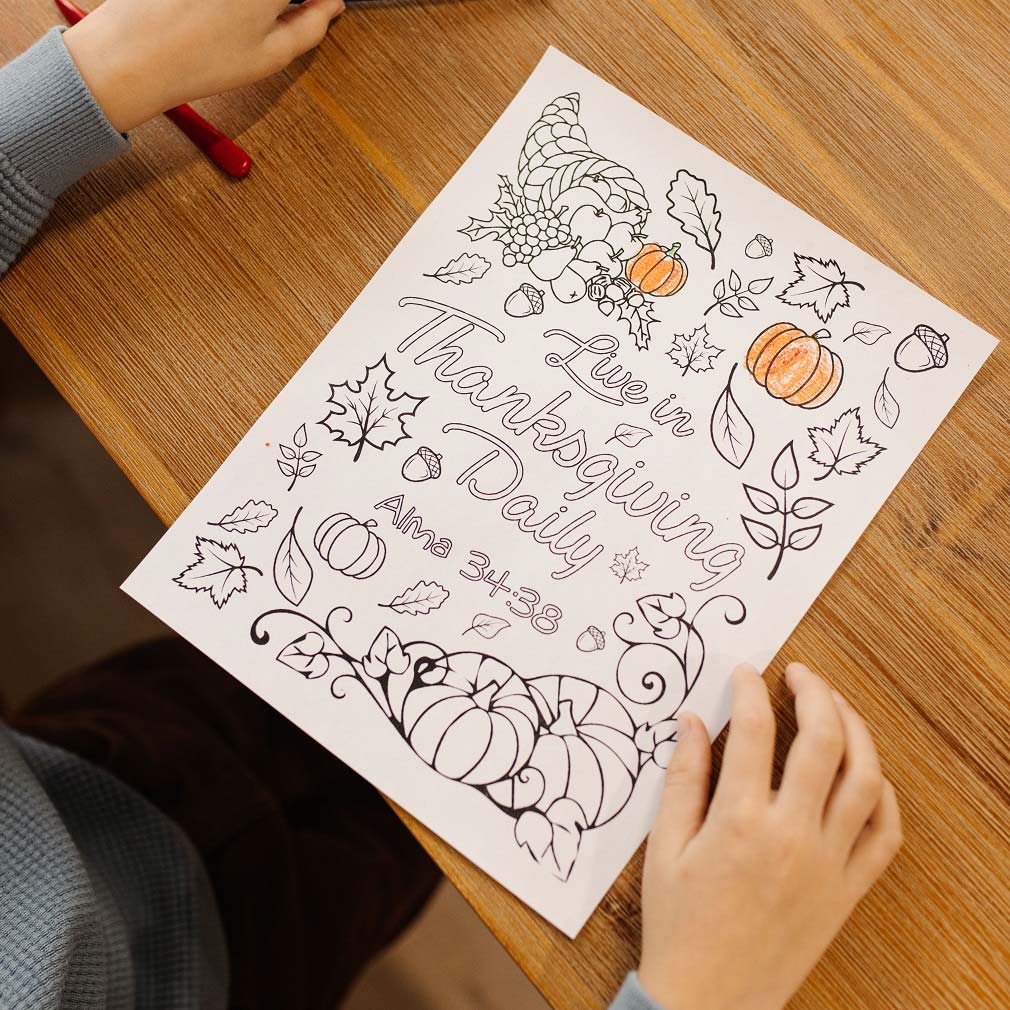 Live in
Thanksgiving
Daily
Alma 34:38